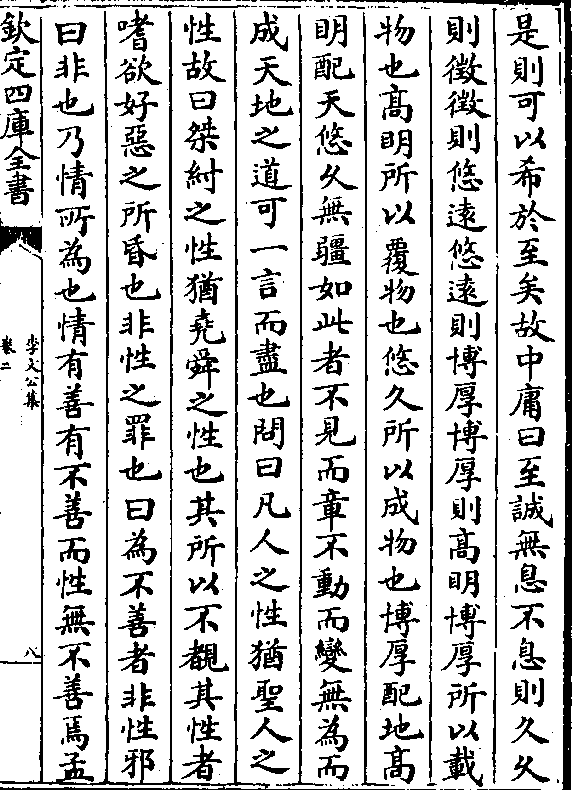 是則可以希於至矣故中庸曰至誠無息不息則久久
則徴徴則悠遠悠遠則博厚博厚則髙明博厚所以載
物也髙明所以覆物也悠久所以成物也博厚配地髙
明配天悠久無疆如此者不見而章不動而變無為而
成天地之道可一言而盡也問曰凡人之性猶聖人之
性故曰桀紂之性猶堯舜之性也其所以不覩其性者
嗜欲好惡之所昏也非性之罪也曰為不善者非性邪
曰非也乃情所為也情有善有不善而性無不善焉孟
欽定四庫全書
李文公集
卷二
八